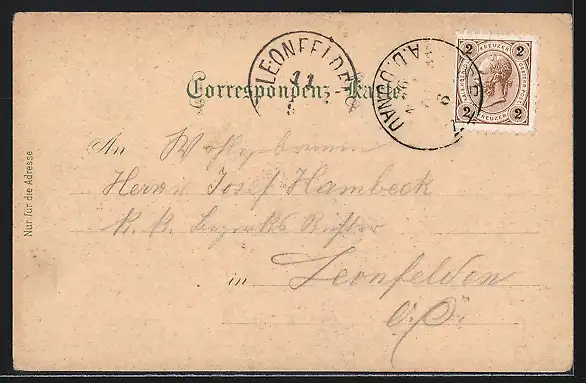 LEONFELDEN
11
A.D. DONAU
2 KREUZER 2
2 KREUZER 2
Correspondenz-Karte
An Wohlgeboren
Herrn Josef Hambeck
k. k. Bezirks Richter
in Leonfelden
O. Ö.
Nur für die Adresse